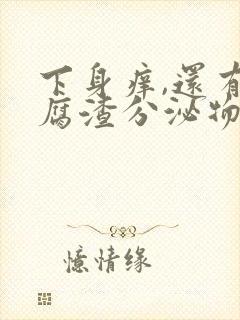 下身痒,還有
腐渣分泌物
憶情缘